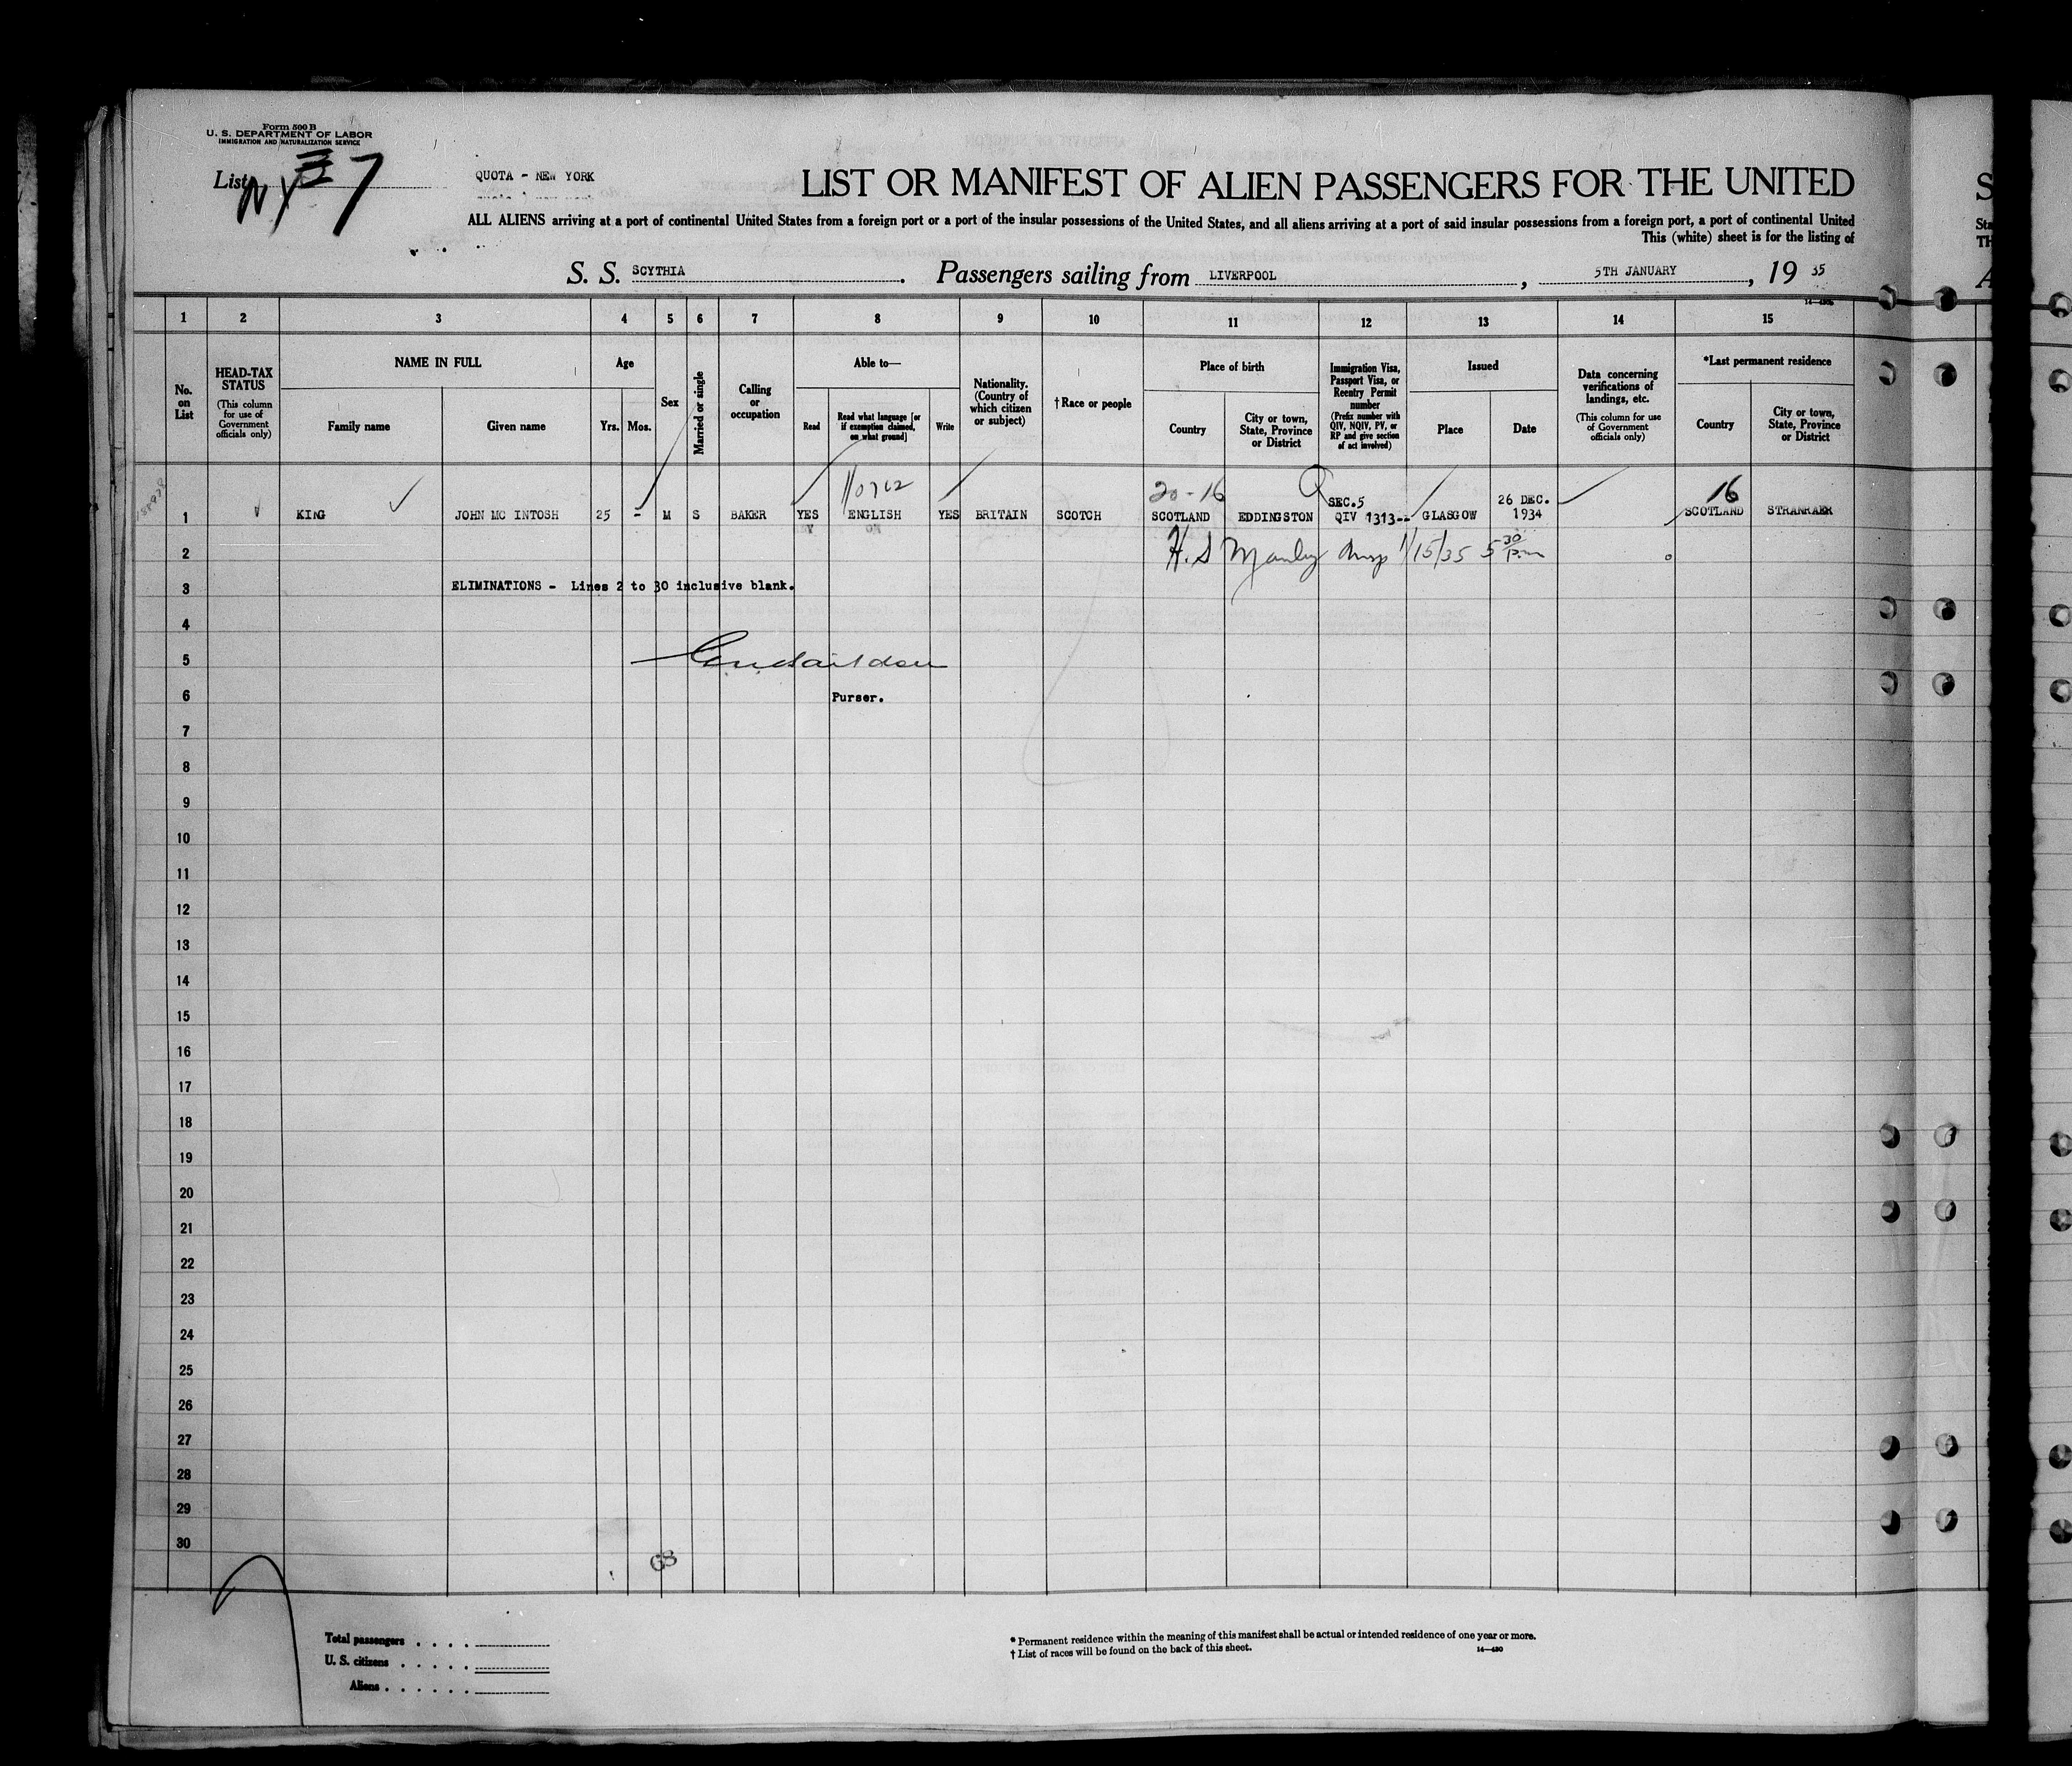 Form 500 B
U. S. DEPARTMENT OF LABOR
IMMIGRATION AND NATURALIZATION SERVICE
List NY 7
QUOTA - NEW YORK
LIST OR MANIFEST OF ALIEN PASSENGERS FOR THE UNITED
ALL ALIENS arriving at a port of continental United States from a foreign port or a port of the insular possessions of the United States, and all aliens arriving at a port of said insular possessions from a foreign port, a port of continental United
This (white) sheet is for the listing of
S. S. SCYTHIA. Passengers sailing from LIVERPOOL, 5TH JANUARY, 19 35
1 2 3 4 5 6 7 8 9 10 11 12 13 14 15
No. on List
HEAD-TAX STATUS (This column for use of Government officials only)
NAME IN FULL
Family name
Given name
Age
Yrs. Mos.
Sex
Married or single
Calling or occupation
Able to—
Read
Read what language [or if exemption claimed, on what ground]
Write
Nationality. (Country of which citizen or subject)
†Race or people
Place of birth
Country
City or town, State, Province or District
Immigration Visa, Passport Visa, or Reentry Permit number (Prefix number with QIV, NQIV, PV, or RP and give section of act involved)
Issued
Place
Date
Data concerning verifications of landings, etc. (This column for use of Government officials only)
*Last permanent residence
Country
City or town, State, Province or District
20-16 Q SEC.5 26 DEC. 16
1 KING JOHN MC INTOSH 25 - M S BAKER YES ENGLISH YES BRITAIN SCOTCH SCOTLAND EDDINGSTON QIV 1313-- GLASGOW 1934 SCOTLAND STRANRAER
2 H. S Manley Insp 1/15/35 5 30 p.m
3 ELIMINATIONS - Lines 2 to 30 inclusive blank.
4
5
6 Purser.
7
8
9
10
11
12
13
14
15
16
17
18
19
20
21
22
23
24
25
26
27
28
29
30
GS
Total passengers . . . .
U. S. citizens . . . . .
Aliens . . . . . .
* Permanent residence within the meaning of this manifest shall be actual or intended residence of one year or more.
† List of races will be found on the back of this sheet.
14—430